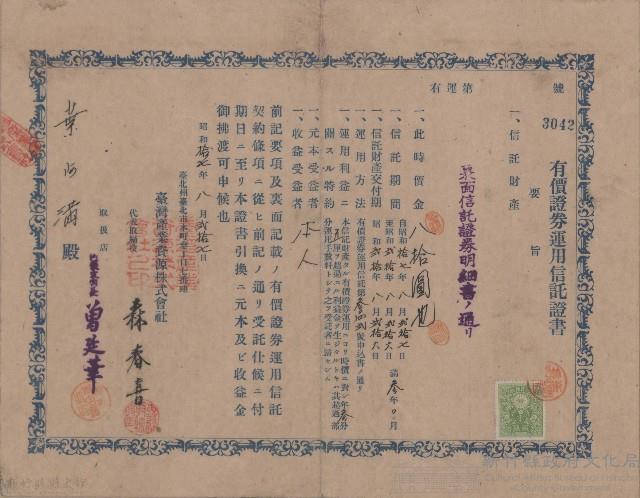 第運有 號
3042
有價證券運用信託證書
要旨
一、信託財産
裏面信託證券明細書ノ通リ
一、此時價金 八拾圓也
一、信託期間 自昭和拾七年八月貳拾七日 至昭和貳拾年八月貳拾六日 滿參年0月
一、信託財産交付期 昭和貳拾年八月貳拾六日
一、運用方法 有價證券運用信託第3042號申込書ノ通リ
一、運用利益ニ關スル特約
一、元本受益者
一、收益受益者 本人
前記要項及裏面記載ノ有價證券運用信託
契約條項ニ從ヒ前記ノ通リ受託仕候ニ付
期日ニ至リ本證書引換ニ元本及ビ收益金
御拂渡可申候也
昭和拾七年八月貳拾七日
臺北州臺北市本町
臺灣産業資源株式會社
代表取締役 森春喜
取扱店
曾延華
葉 滿 殿
新竹縣政府文化局
Cultural Affairs Bureau of Hsinchu